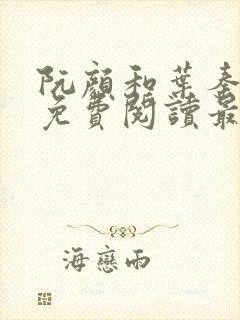 阮顏和葉奏
免費閱讀最
海戀雨